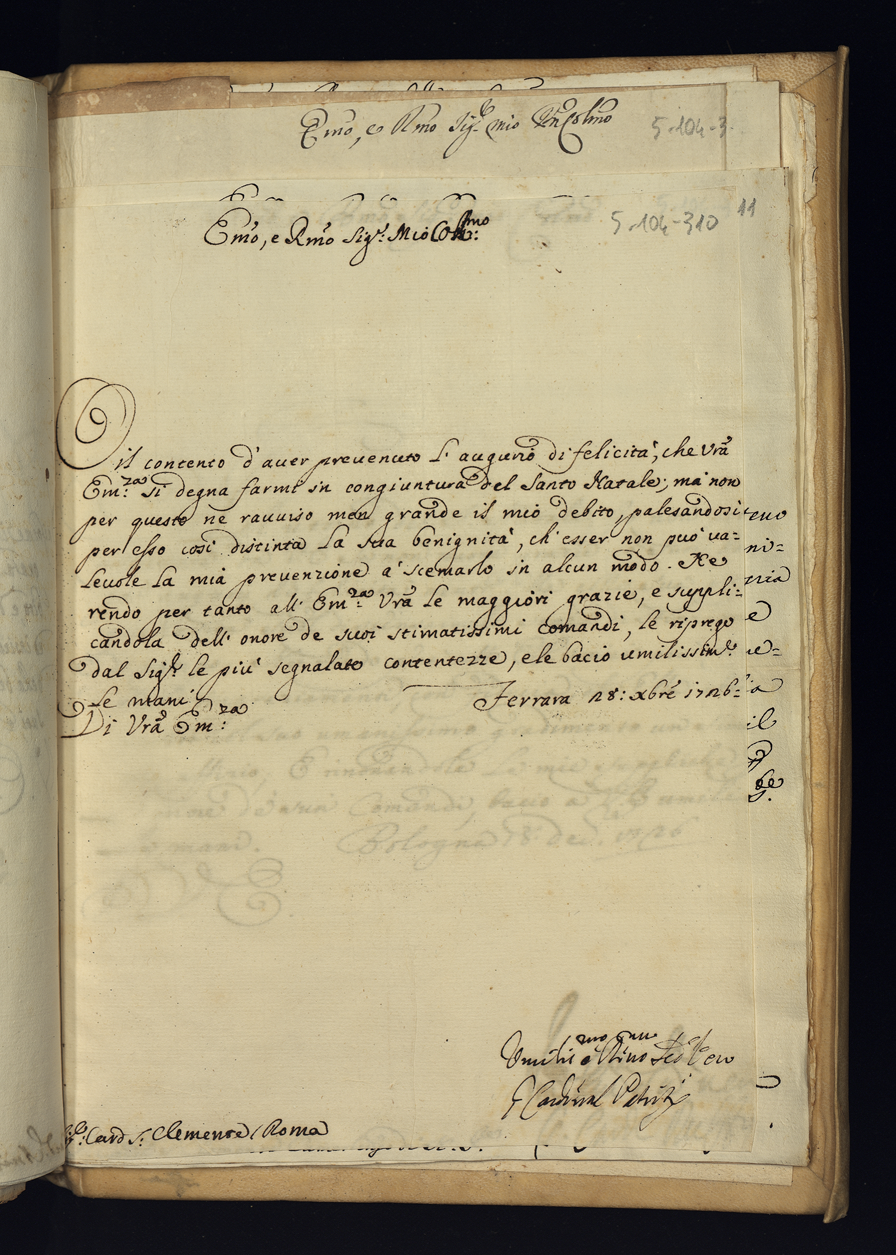 Emo, e Rmo Sig.r mio
5-104-3
11
5-104-310
Emo, e Rmo Sig.r Mio Col.mo
O il contento d'auer preuenuto l'augurio di felicità, che Vrã
Em.za si degna farmi in congiuntura del Santo Natale; mà non
per questo ne rauuiso men grande il mio debito, palesandosi
per esso così distinta la sua benignità, ch'esser non può ua=
leuole la mia preuenzione à scemarlo in alcun modo. Ne
rendo per tanto all'Em.za Vrã le maggiori grazie, e suppli=
candola dell'onore de suoi stimatissimi comandi, le riprego
dal Sig.re le più segnalate contentezze, e le bacio umilissim.e
le mani Ferrara 28: Xbrẽ 1726
Di Vrã Em.za:
Cardinal Patrizj
Card S. Clemente / Roma